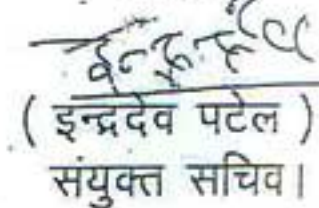 ( इन्द्रदेव पटेल )
संयुक्त सचिव।